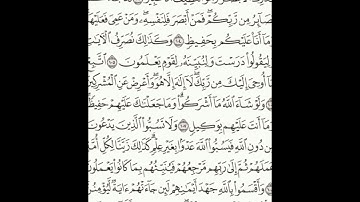 بَصَآئِرُ مِن رَّبِّكُمْ فَمَنْ أَبْصَرَ فَلِنَفْسِهِۦ وَمَنْ عَمِىَ فَعَلَيْهَا
وَمَآ أَنَا۠ عَلَيْكُم بِحَفِيظٍ ١٠٤ وَكَذَٰلِكَ نُصَرِّفُ ٱلْءَايَٰتِ
وَلِيَقُولُوا۟ دَرَسْتَ وَلِنُبَيِّنَهُۥ لِقَوْمٍ يَعْلَمُونَ ١٠٥ ٱتَّبِعْ
مَآ أُوحِىَ إِلَيْكَ مِن رَّبِّكَ لَآ إِلَٰهَ إِلَّا هُوَ وَأَعْرِضْ عَنِ ٱلْمُشْرِكِينَ
وَلَوْ شَآءَ ٱللَّهُ مَآ أَشْرَكُوا۟ وَمَا جَعَلْنَٰكَ عَلَيْهِمْ حَفِيظًا
وَمَآ أَنتَ عَلَيْهِم بِوَكِيلٍ ١٠٧ وَلَا تَسُبُّوا۟ ٱلَّذِينَ يَدْعُونَ
مِن دُونِ ٱللَّهِ فَيَسُبُّوا۟ ٱللَّهَ عَدْوًۢا بِغَيْرِ عِلْمٍ كَذَٰلِكَ زَيَّنَّا لِكُلِّ أُمَّةٍ
عَمَلَهُمْ ثُمَّ إِلَىٰ رَبِّهِم مَّرْجِعُهُمْ فَيُنَبِّئُهُم بِمَا كَانُوا۟ يَعْمَلُونَ
وَأَقْسَمُوا۟ بِٱللَّهِ جَهْدَ أَيْمَٰنِهِمْ لَئِن جَآءَتْهُمْ ءَايَةٌ لَّيُؤْمِنُنَّ